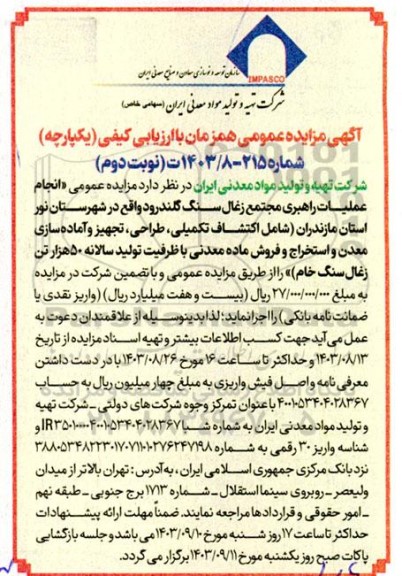 IMPASCO
سازمان توسعه و نوسازی معادن و صنایع معدنی ایران
شرکت تهیه و تولید مواد معدنی ایران (سهامی خاص)
آگهی مزایده عمومی همزمان با ارزیابی کیفی (یکپارچه)
شماره ۲۱۵-۱۴۰۳/۸ت (نوبت دوم)
شرکت تهیه و تولید مواد معدنی ایران در نظر دارد مزایده عمومی «انجام
عملیات راهبری مجتمع زغال سنگ گلندرود واقع در شهرستان نور
استان مازندران (شامل اکتشاف تکمیلی، طراحی، تجهیز و آماده‌سازی
معدن و استخراج و فروش ماده معدنی با ظرفیت تولید سالانه ۵۰هزار تن
زغال سنگ خام)» را از طریق مزایده عمومی و با تضمین شرکت در مزایده
به مبلغ ۲۷/۰۰۰/۰۰۰/۰۰۰ ریال (بیست و هفت میلیارد ریال) (واریز نقدی یا
ضمانت نامه بانکی) را اجرا نماید؛ لذا بدینوسیله از علاقمندان دعوت به
عمل می‌آید جهت کسب اطلاعات بیشتر و تهیه اسناد مزایده از تاریخ
۱۴۰۳/۰۸/۱۳ و حداکثر تا ساعت ۱۶ مورخ ۱۴۰۳/۰۸/۲۶ با در دست داشتن
معرفی نامه و اصل فیش واریزی به مبلغ چهار میلیون ریال به حساب
۴۰۰۱۰۵۳۴۰۴۰۲۸۳۶۷ با عنوان تمرکز وجوه شرکت های دولتی ـ شرکت تهیه
و تولید مواد معدنی ایران به شماره شبا
شناسه واریز ۳۰ رقمی به شماره
نزد بانک مرکزی جمهوری اسلامی ایران، به آدرس: تهران بالاتر از میدان
ولیعصر ـ روبروی سینما استقلال ـ شماره ۱۷۱۳ برج جنوبی ـ طبقه نهم
ـ امور حقوقی و قراردادها مراجعه نمایند. ضمناً مهلت ارائه پیشنهادات
حداکثر تا ساعت ۱۷ روز شنبه مورخ ۱۴۰۳/۰۹/۱۰ می باشد و جلسه بازگشایی
پاکات صبح روز یکشنبه مورخ ۱۴۰۳/۰۹/۱۱ برگزار می گردد.